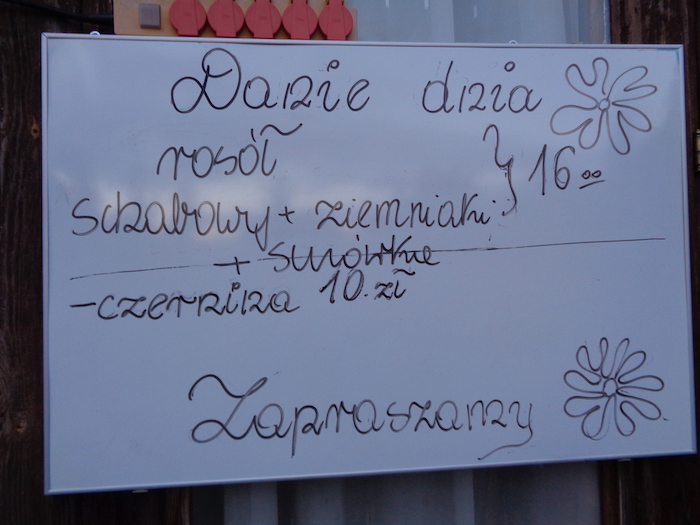 Danie dnia
rosół
schabowy + ziemniaki } 16 00
+ surówka
- czernina 10.zł
Zapraszamy